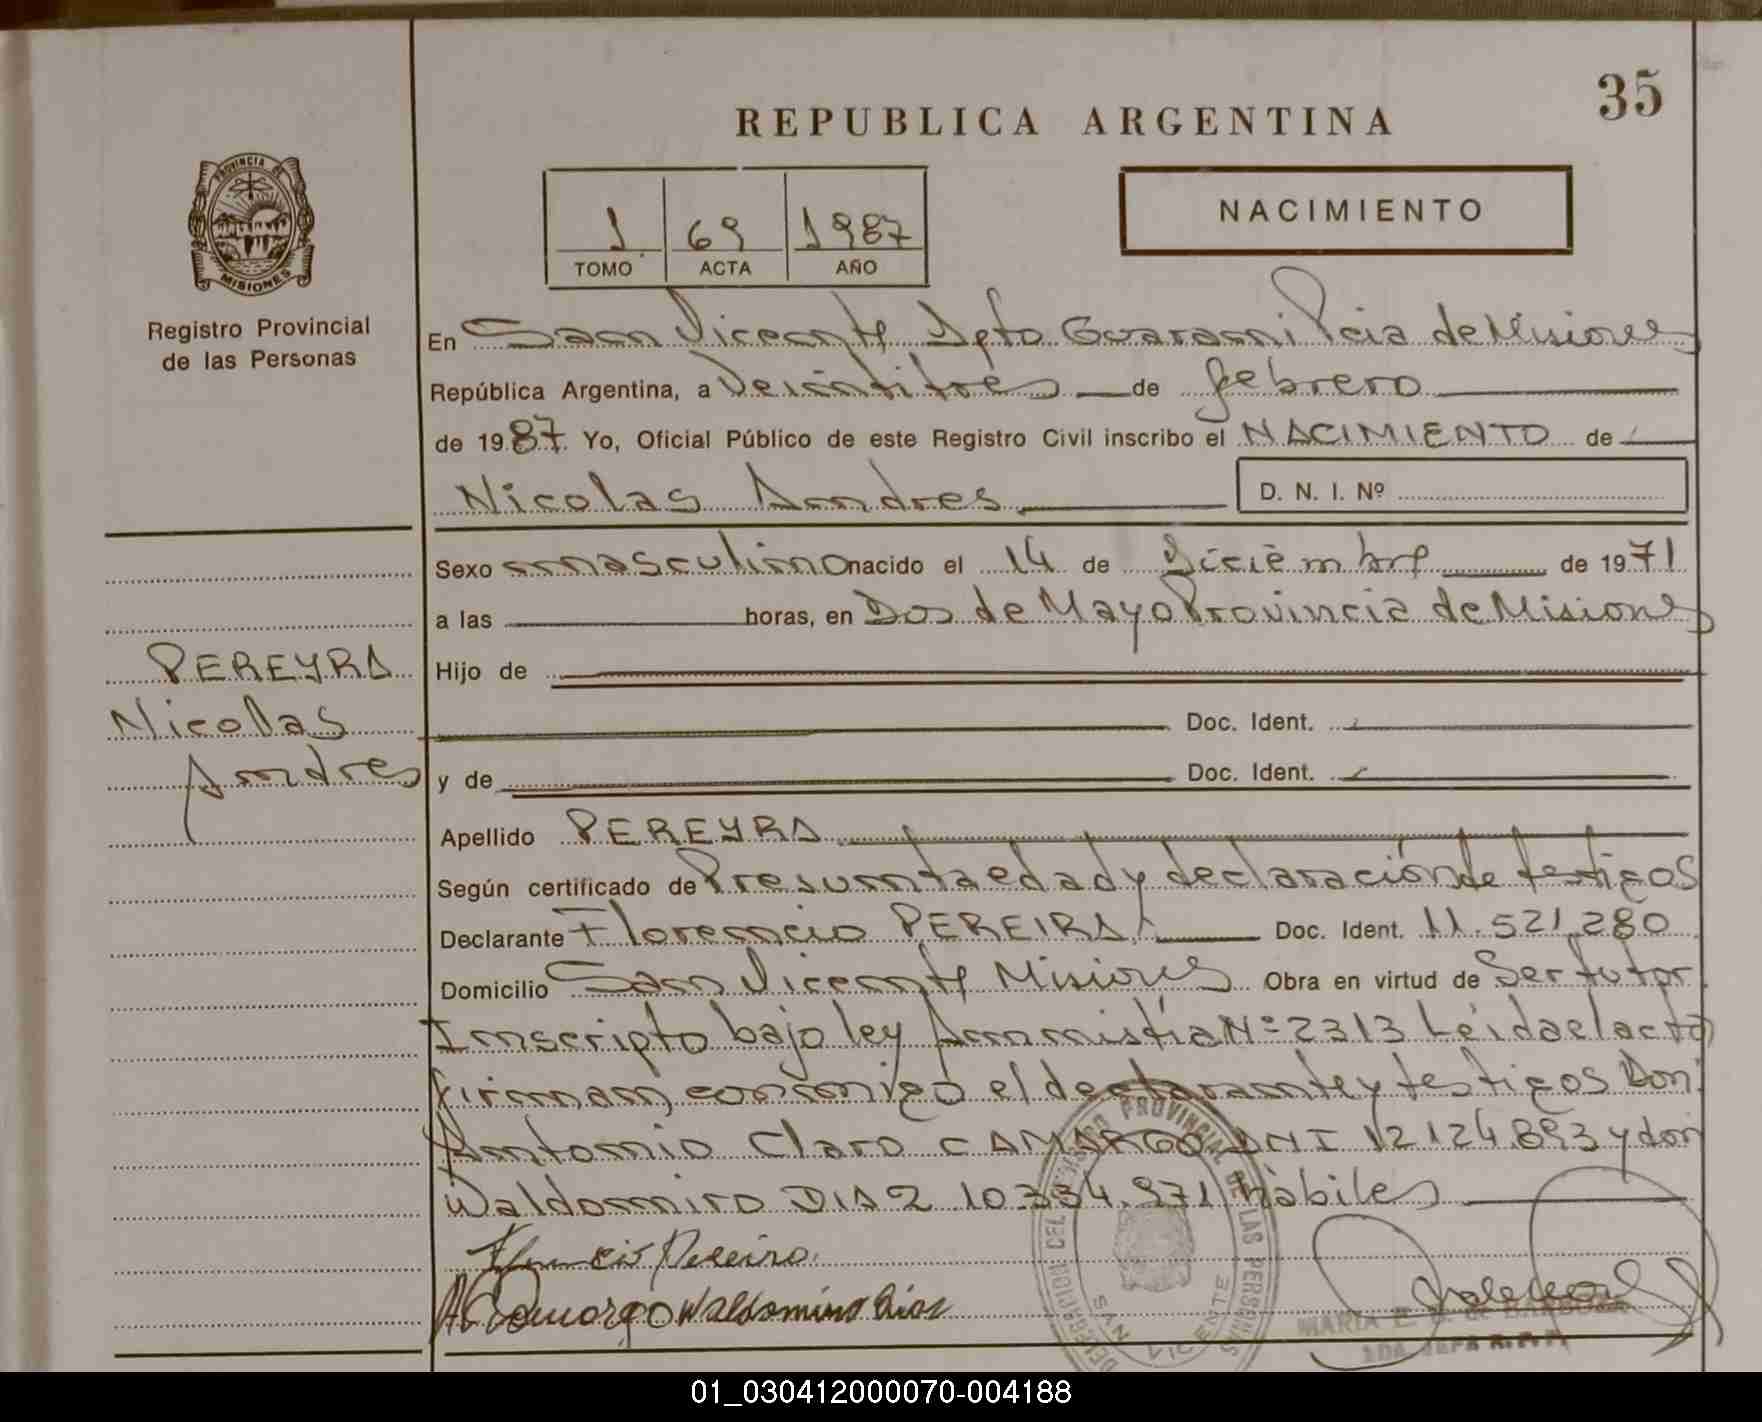 35
REPUBLICA ARGENTINA
PROVINCIA DE
MISIONES
1 69 1987
TOMO ACTA AÑO
NACIMIENTO
Registro Provincial
de las Personas
En San Vicente Dpto Guarani Pcia de Misiones
República Argentina, a Veintitres de febrero
de 1987. Yo, Oficial Público de este Registro Civil inscribo el NACIMIENTO de
Nicolas Andres D. N. I. Nº
Sexo masculino nacido el 14 de Diciembre de 1971
a las horas, en Dos de Mayo Provincia de Misiones
PEREYRA
Nicolas
Andres
Hijo de
Doc. Ident.
y de Doc. Ident.
Apellido PEREYRA
Según certificado de Presunta edad y declaración de testigos
Declarante Florencio PEREIRA Doc. Ident. 11.521.280
Domicilio San Vicente Misiones Obra en virtud de Ser tutor
Inscripto bajo ley Ammistía Nº 2313 Leida el acta
firman conmigo el declarante y testigos Don:
Antonio Claro CAMARGO DNI 12.124.893 y don
Waldomiro DIAZ 10.334.971 hábiles
Florencio Pereira
A C Camargo Waldomiro Diaz
DELEGACIO DEL REGISTRO PROVINCIAL DE LAS PERSONAS
SAN VICENTE
MARIA E. DE BARBOSA
JEFA R.P.P.
01_030412000070-004188